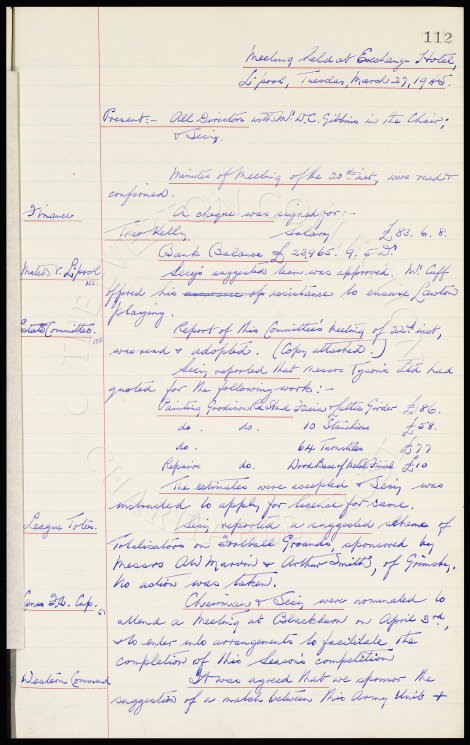 112
Meeting held at Exchange Hotel,
L'pool, Tuesday, March 27, 1945.
Present:- All Directors with Mr W.C. Gibbins in the Chair,
& Secy.
Minutes of Meeting of the 20th inst, were read &
confirmed.
Finance
A cheque was signed for:-
Theo Kelly Salary £83. 6. 8.
Bank Balance £23,965. 9. 5 Dr.
Match v. L'pool
Secy's suggested team was approved. Mr. Cuff
offered his assurance of assistance to ensure Lawton
playing.
Estate Committee. 108
Report of this Committee's Meeting of 22nd inst,
was read & adopted. (Copy attached.)
Secy reported that Messrs Tysons Ltd had
quoted for the following work:-
Painting Goodison Rd Stand Facia & Lattice Girder £86.
do. do. 10 Stanchions £58.
do. 64 Turnstiles £77
Repairs do. Wood Base of Metal Finial £10
The estimates were accepted & Secy was
instructed to apply for licence for same.
League Totes.
Secy reported a suggested scheme of
Totalisators on Football Grounds, sponsored by
Messrs AW Marvin & Arthur Smith, of Grimsby.
No action was taken.
Lancs F.A. Cup.
Chairman & Secy were nominated to
attend a Meeting at Blackburn on April 3rd,
& to enter into arrangements to facilitate the
completion of this Season's competition
Western Command
It was agreed that we sponsor the
suggestion of a match between this Army Unit &